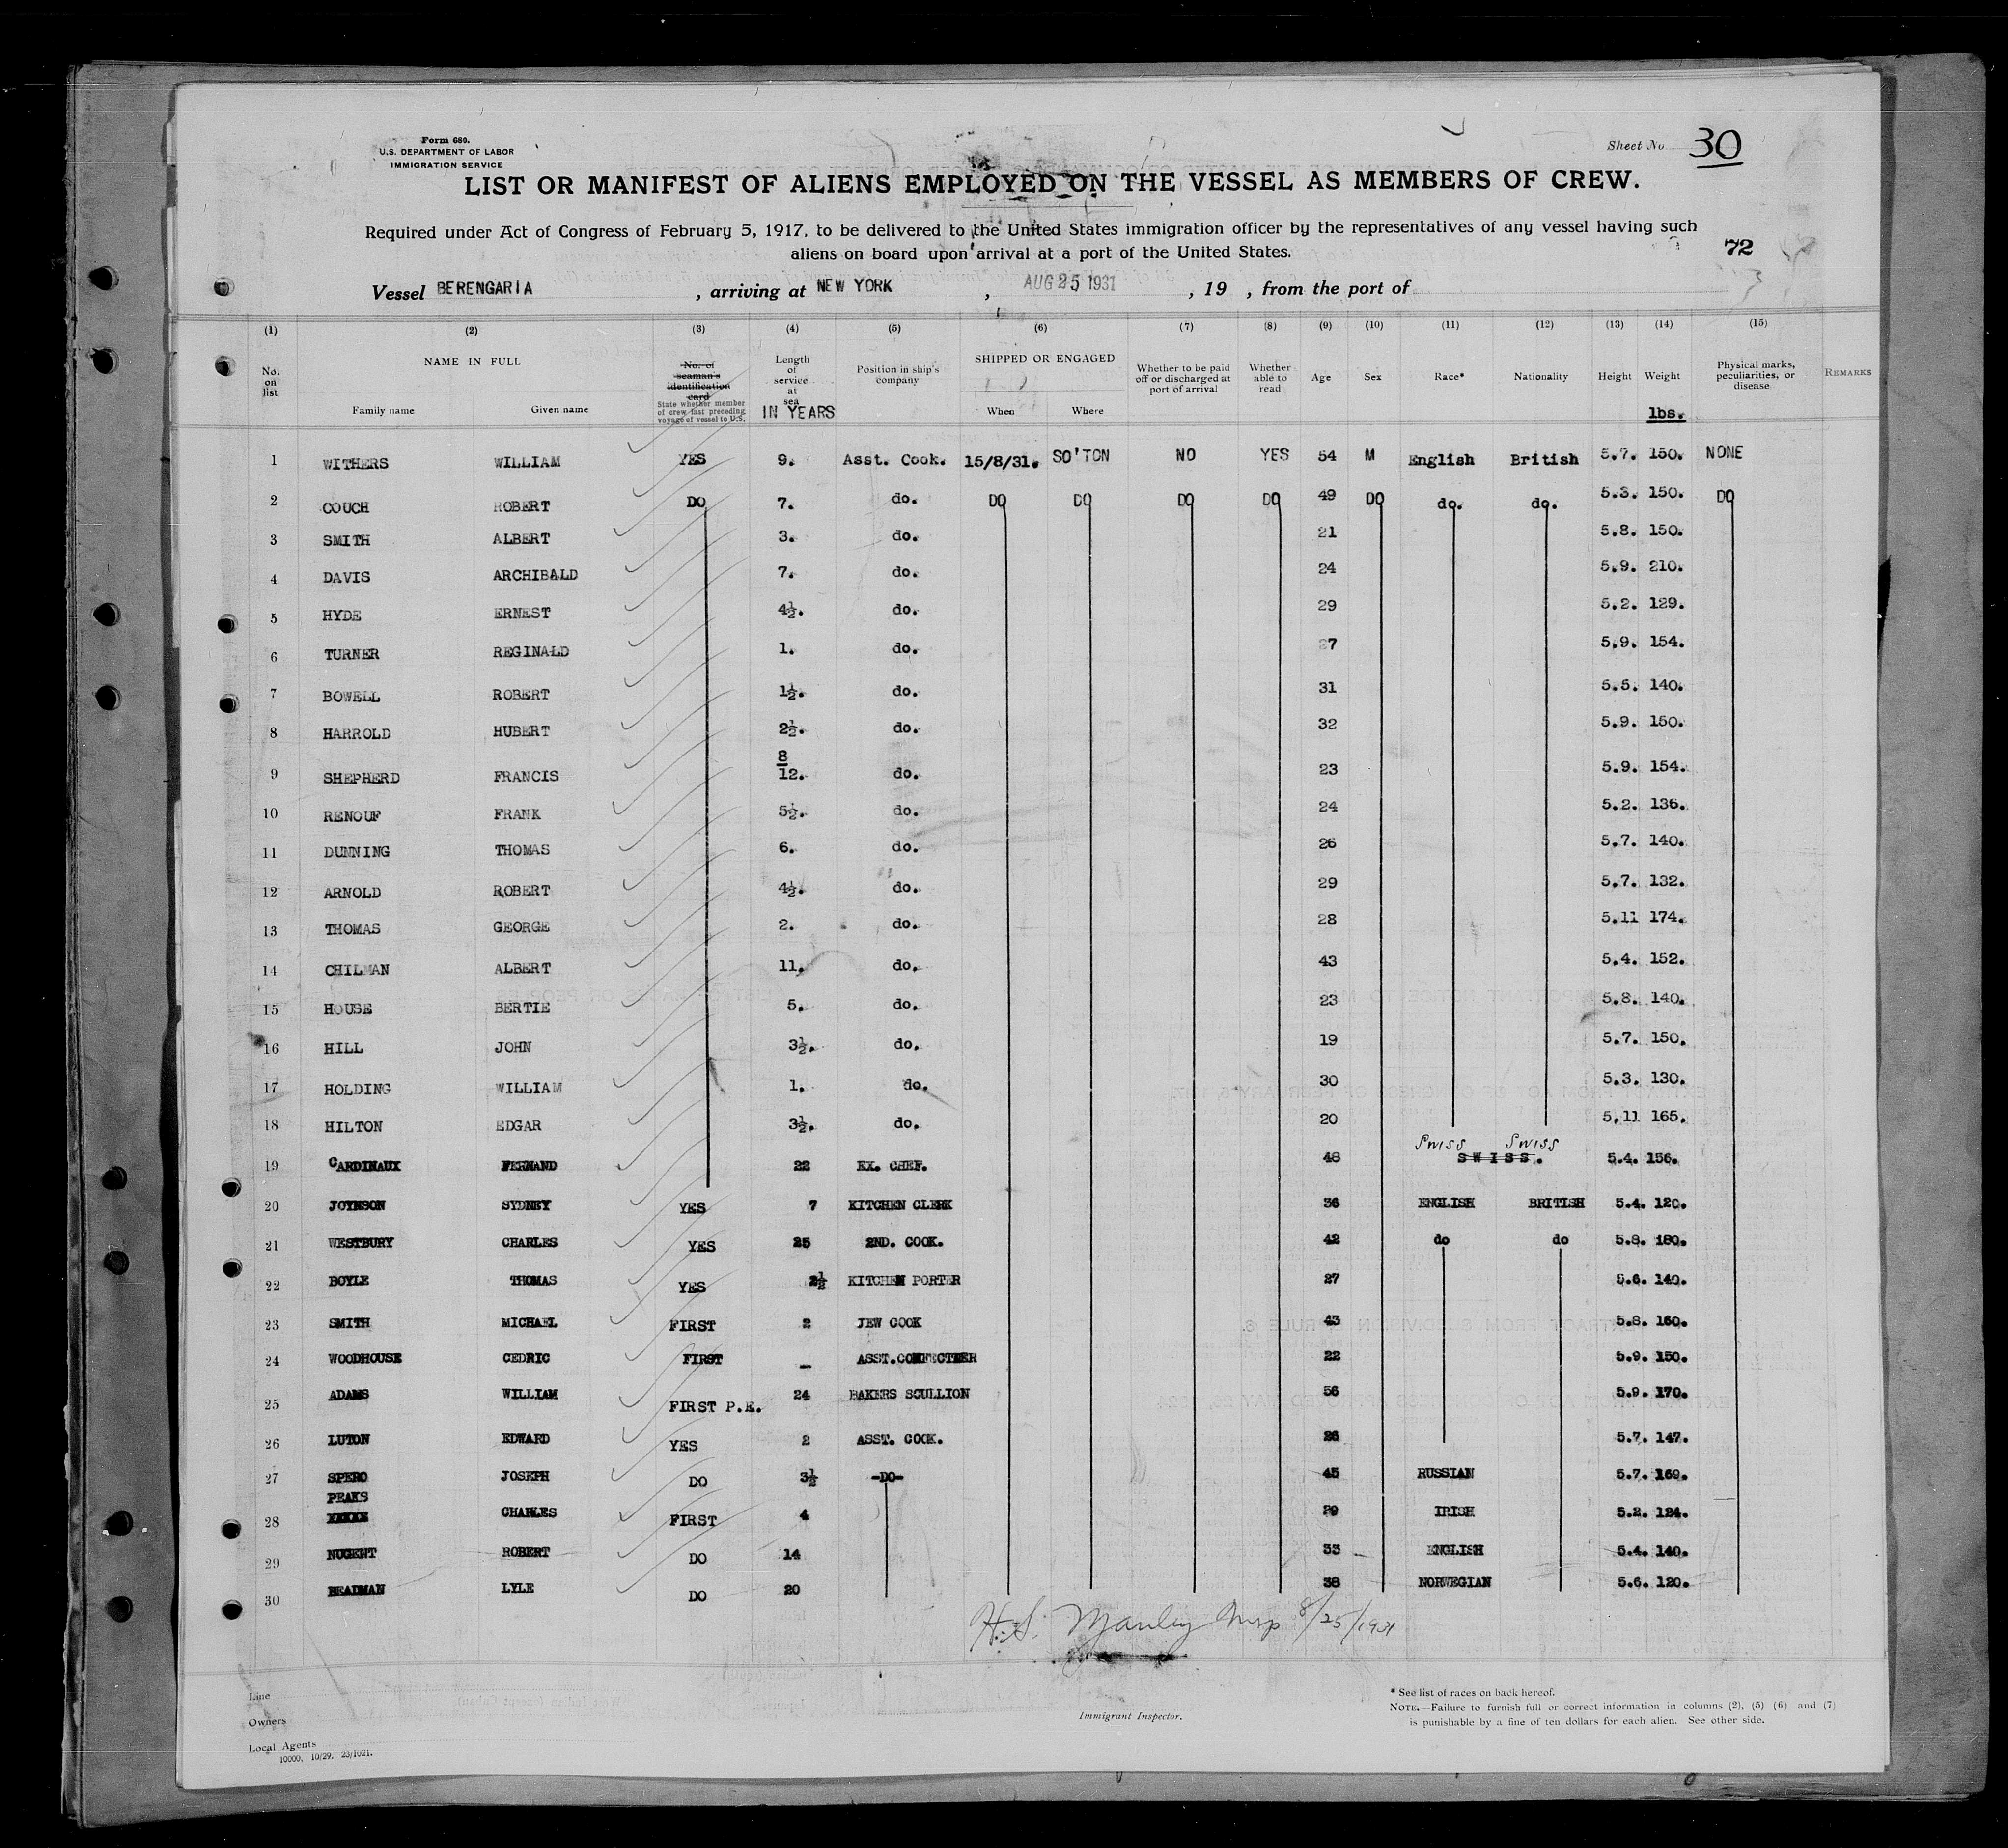 Form 680.
U.S. DEPARTMENT OF LABOR
IMMIGRATION SERVICE
Sheet No 30
LIST OR MANIFEST OF ALIENS EMPLOYED ON THE VESSEL AS MEMBERS OF CREW.
Required under Act of Congress of February 5, 1917, to be delivered to the United States immigration officer by the representatives of any vessel having such
aliens on board upon arrival at a port of the United States.
72
Vessel BERENGARIA , arriving at NEW YORK , AUG 25 1931 , 19 , from the port of
(1) (2) (3) (4) (5) (6) (7) (8) (9) (10) (11) (12) (13) (14) (15)
No. on list NAME IN FULL Family name Given name No. of seaman's identification card State whether member of crew last preceding voyage of vessel to U.S. Length of service at sea IN YEARS Position in ship's company SHIPPED OR ENGAGED When Where Whether to be paid off or discharged at port of arrival Whether able to read Age Sex Race* Nationality Height Weight lbs. Physical marks, peculiarities, or disease REMARKS
1 WITHERS WILLIAM YES 9. Asst. Cook. 15/8/31. SO'TON NO YES 54 M English British 5.7. 150. NONE
2 COUCH ROBERT DO 7. do. DO DO DO DO 49 DO do. do. 5.3. 150. DO
3 SMITH ALBERT 3. do. 21 5.8. 150.
4 DAVIS ARCHIBALD 7. do. 24 5.9. 210.
5 HYDE ERNEST 4½. do. 29 5.2. 129.
6 TURNER REGINALD 1. do. 27 5.9. 154.
7 BOWELL ROBERT 1½. do. 31 5.5. 140.
8 HARROLD HUBERT 2½. do. 32 5.9. 150.
9 SHEPHERD FRANCIS 8/12. do. 23 5.9. 154.
10 RENOUF FRANK 5½. do. 24 5.2. 136.
11 DUNNING THOMAS 6. do. 26 5.7. 140.
12 ARNOLD ROBERT 4½. do. 29 5.7. 132.
13 THOMAS GEORGE 2. do. 28 5.11 174.
14 CHILMAN ALBERT 11. do. 43 5.4. 152.
15 HOUSE BERTIE 5. do. 23 5.8. 140.
16 HILL JOHN 3½. do. 19 5.7. 150.
17 HOLDING WILLIAM 1. do. 30 5.3. 130.
18 HILTON EDGAR 3½. do. 20 5.11 165.
Swiss Swiss
19 CARDINAUX FERNAND 22 EX. CHEF. 48 SWISS. 5.4. 156.
20 JOYNSON SYDNEY YES 7 KITCHEN CLERK 36 ENGLISH BRITISH 5.4. 120.
21 WESTBURY CHARLES YES 25 2ND. COOK. 42 do do 5.8. 180.
22 BOYLE THOMAS YES 2½ KITCHEN PORTER 27 5.6. 140.
23 SMITH MICHAEL FIRST 2 JEW COOK 43 5.8. 160.
24 WOODHOUSE CEDRIC FIRST _ ASST.CONFECTNER 22 5.9. 150.
25 ADAMS WILLIAM FIRST P.E. 24 BAKERS SCULLION 56 5.9. 170.
26 LUTON EDWARD YES 2 ASST. COOK. 26 5.7. 147.
27 SPERO JOSEPH DO 3½ -DO- 45 RUSSIAN 5.7. 169.
28 PEAKS CHARLES FIRST 4 29 IRISH 5.2. 124.
29 NUGENT ROBERT DO 14 33 ENGLISH 5.4. 140.
30 BEADMAN LYLE DO 20 38 NORWEGIAN 5.6. 120.
H.S. Manley Insp 8/25/1931
Line
Owners
Local Agents
10000, 10/29. 23/1021.
Immigrant Inspector.
* See list of races on back hereof.
NOTE.—Failure to furnish full or correct information in columns (2), (5) (6) and (7)
is punishable by a fine of ten dollars for each alien. See other side.